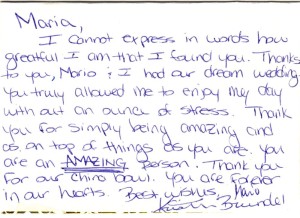 Maria,
I cannot express in words how
greatful I am that I found you. Thanks
to you, Mario & I had our dream wedding.
You truly allowed me to enjoy my day
with out an ounce of stress. Thank
you for simply being amazing and
as on top of things as you are. You
are an AMAZING person. Thank you
for our china bowl. You are forever
in our hearts. Best wishes, Mario